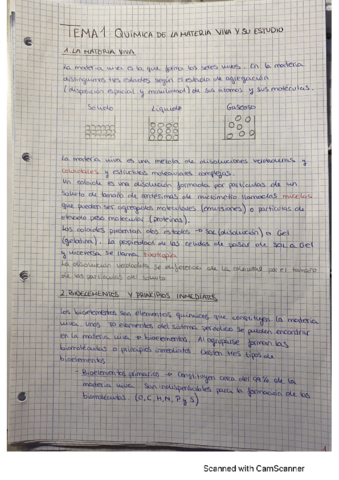 TEMA 1 QUÍMICA DE LA MATERIA VIVA Y SU ESTUDIO
1. LA MATERIA VIVA
La materia viva es la que forma los seres vivos. En la materia
distinguimos tres estados según el estado de agregación
(disposición espacial y movilidad) de sus átomos y sus moléculas.
Sólido Líquido Gaseoso
La materia viva es una mezcla de disoluciones verdaderas y
coloidales y estructuras moleculares complejas.
Un coloide es una disolución formada por partículas de un
soluto de tamaño de centésimas de micrómetro llamadas micelas
que pueden ser agregados moleculares (emulsiones) o partículas de
elevado peso molecular (proteínas).
Los coloides presentan dos estados → Sol (disolución) o Gel
(gelatina). La propiedad de las células de pasar de Sol a Gel
y viceversa se llama tixotropía
La disolución verdadera se diferencia de la coloidal por el tamaño
de las partículas del soluto
2. BIOELEMENTOS Y PRINCIPIOS INMEDIATOS
Los bioelementos son elementos químicos que constituyen la materia
viva. Unos 70 elementos del sistema periódico se pueden encontrar
en la materia viva → bioelementos. Al agruparse forman las
biomoléculas o principios inmediatos. Existen tres tipos de
bioelementos
- Bioelementos primarios → Constituyen cerca del 99% de la
materia viva. Son indispensables para la formación de las
biomoléculas. (O, C, H, N, P y S)
1
Scanned with CamScanner